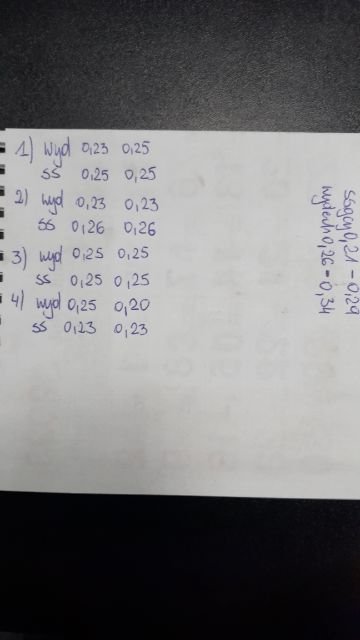 1) wyd 0,23 0,25
ss 0,25 0,25
2) wyd 0,23 0,23
ss 0,26 0,26
3) wyd 0,25 0,25
ss 0,25 0,25
4) wyd 0,25 0,20
ss 0,23 0,23
ssący 0,21 - 0,29
wydech 0,26 - 0,34